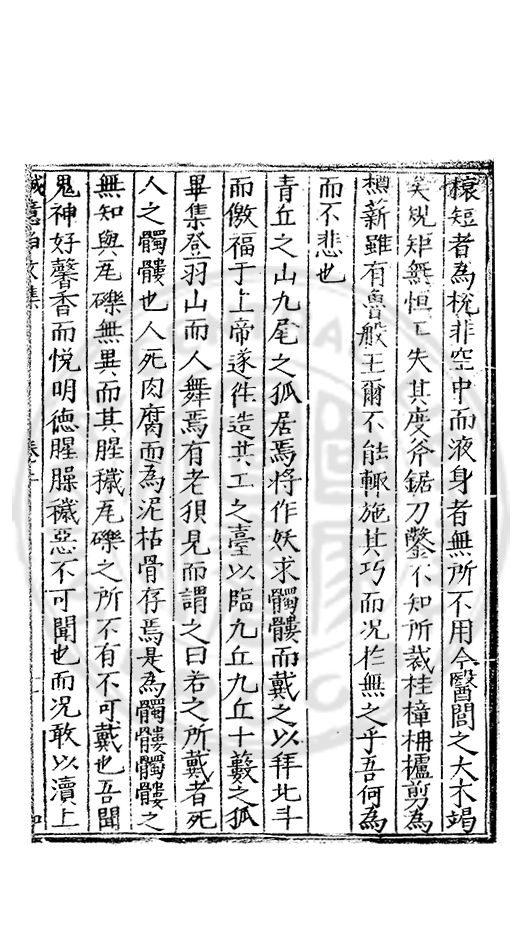 榱短者為梲非空中而液身者無所不用今醫閭之大木竭
矣規矩無恒工失其度斧鋸刀鑿不知所裁桂樟柟櫨剪為
樵薪雖有魯般王爾不能輒施其巧而况於無之乎吾何為
而不悲也
青丘之山九尾之狐居焉將作妖求髑髏而戴之以拜北斗
而儌福于上帝遂徃造共工之臺以臨九丘九丘十藪之狐
畢集登羽山而人舞焉有老狽見而謂之曰若之所戴者死
人之髑髏也人死肉腐而為泥枯骨存焉是為髑髏髑髏之
無知與瓦礫無異而其腥穢瓦礫之所不有不可戴也吾聞
鬼神好馨香而悦明德腥臊穢惡不可聞也而况敢以瀆上
誠意伯文集